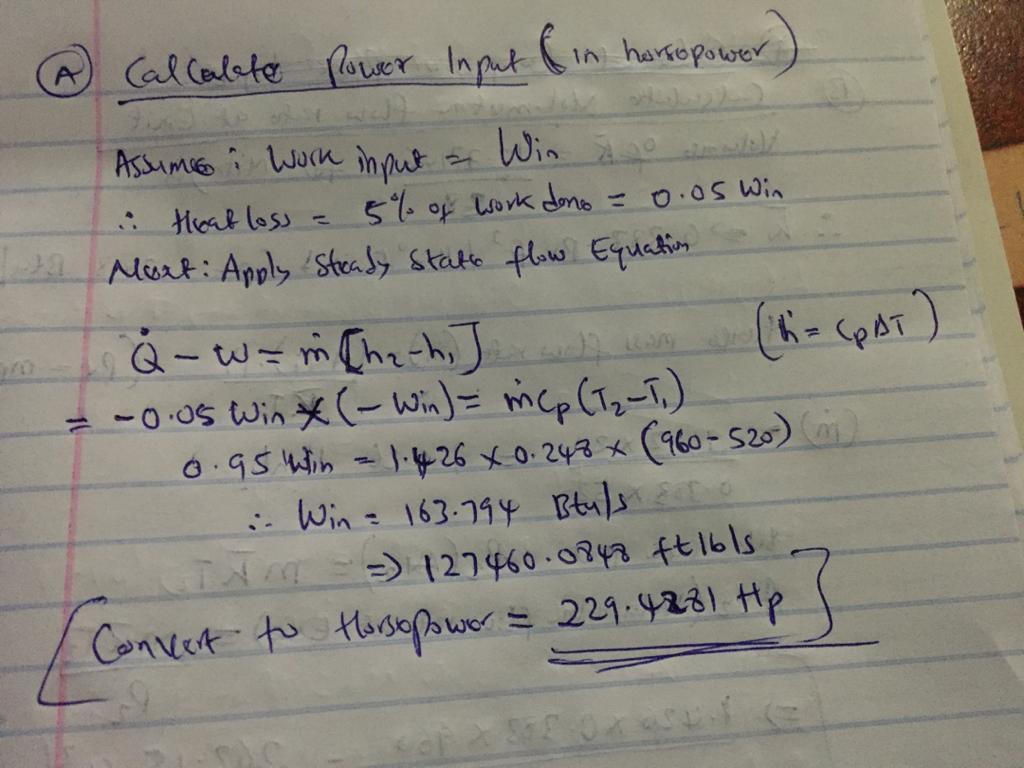 (A) Calculate Power Input (in horsepower)
Assumes : Work input = Win
∴ Heat loss = 5% of work done = 0.05 Win
Next : Apply Steady State flow Equation
Q̇ - W = ṁ [h₂-h₁] (h = CpΔT)
= -0.05 Win (-Win) = ṁCp (T₂-T₁)
0.95 Win = 1.426 x 0.248 x (960-520)
∴ Win = 163.794 Btu/s
=> 127460.0848 ft lb/s
Convert to Horsepower = 229.4281 Hp